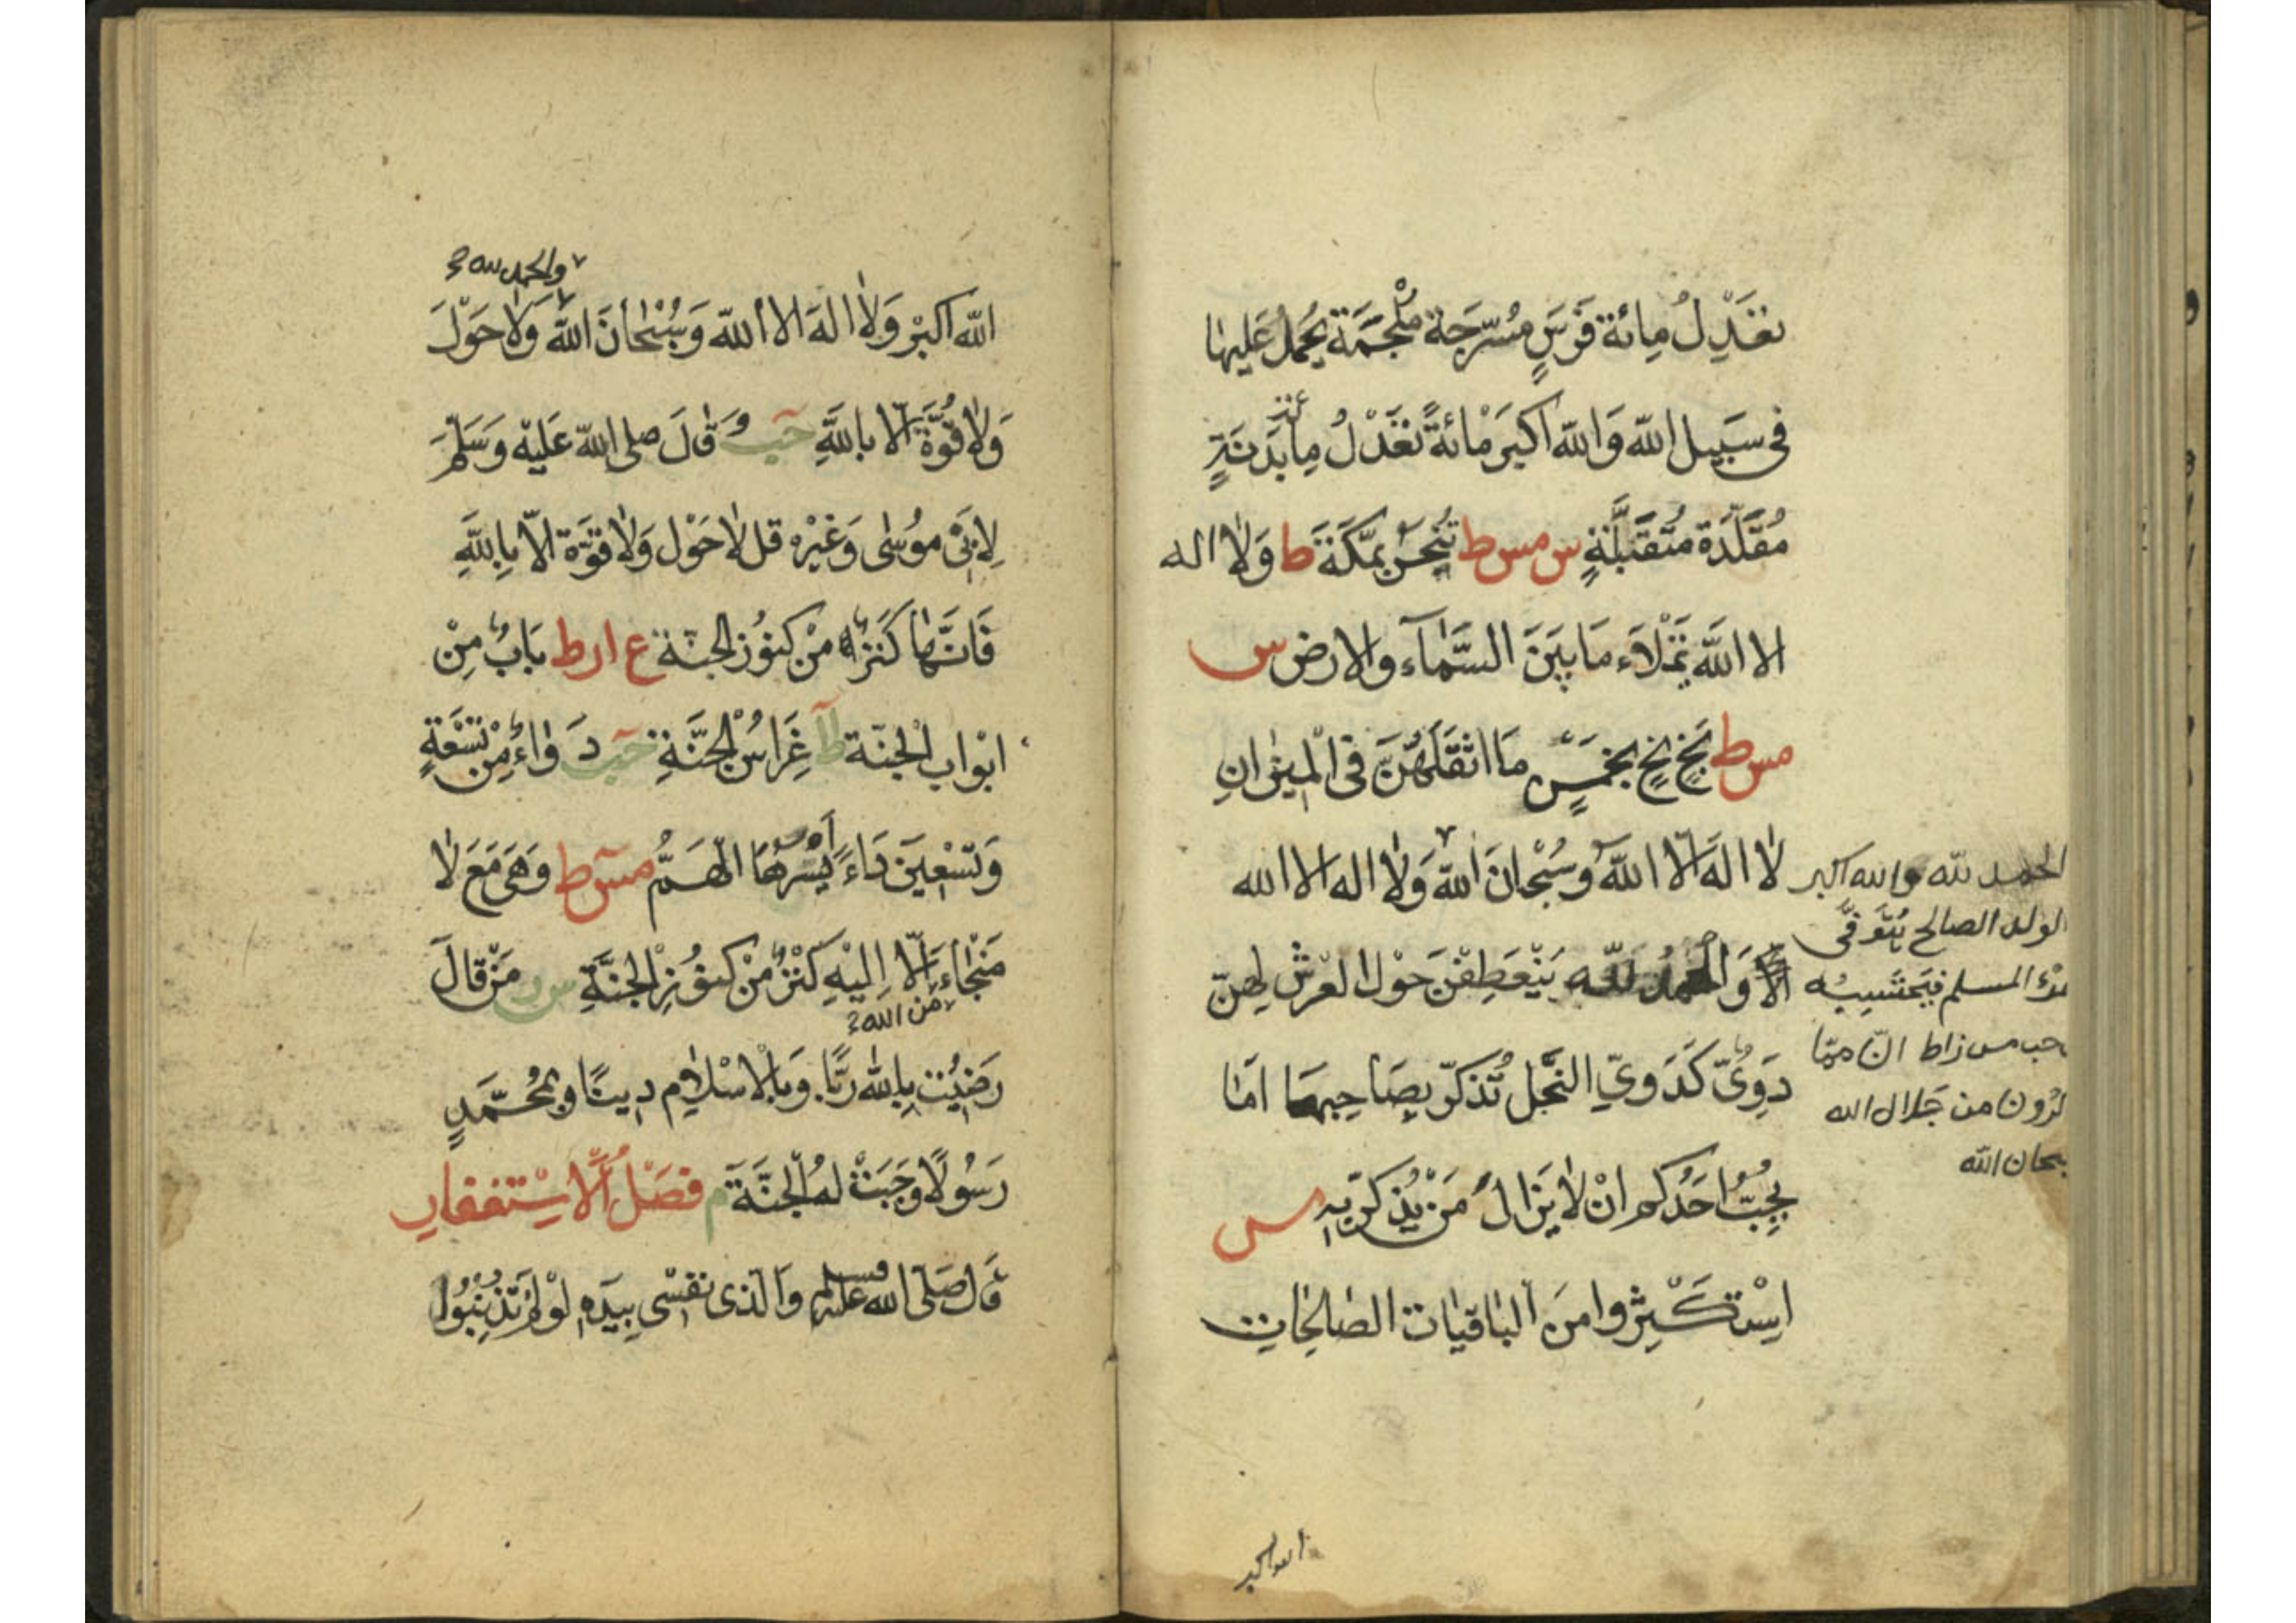 تعدل مائة فرس مسرجة ملجمة يحمل عليها
في سبيل الله والله اكبر مائة تعدل مائة بدنة
مقلدة متقبلة س مس ط تنحر بمكة ط ولا اله
الا الله تملاء ما بين السماء والارض س
مس ط بخ بخ بخمس ما اثقلهن في الميزان
لا اله الا الله وسبحان الله ولا اله الا الله
الا والحمد لله ينعطفن حول العرش لهن
دوي كدوي النحل تذكر بصاحبها اما
يحب احدكم ان لا يزال من يذكر به س
استكثروا من الباقيات الصالحات
الحمد لله والله اكبر
الولد الصالح يتوفى
المسلم فيحتسبه
حب مس ز ا ط ان مما
من جلال الله
الله
الله اكبر
والحمد لله
الله اكبر ولا اله الا الله وسبحان الله ولا حول
ولا قوة الا بالله حب وقال صلى الله عليه وسلم
لابى موسى وغيره قل لا حول ولا قوة الا بالله
فانها كنز من كنوز الجنة ع ا ر ط باب من
ابواب الجنة ط ا غراس الجنة حب دواء من تسعة
وتسعين داء ايسرها الهم مس ط وهى مع لا
منجاء الا اليه كنز من كنوز الجنة س ر من قال
من الله
رضيت بالله ربا وبالاسلام دينا وبمحمد
رسولا وجبت له الجنة م فصل الاستغفار
قال صلى الله عليه وسلم والذى نفسى بيده لو لم تذنبوا